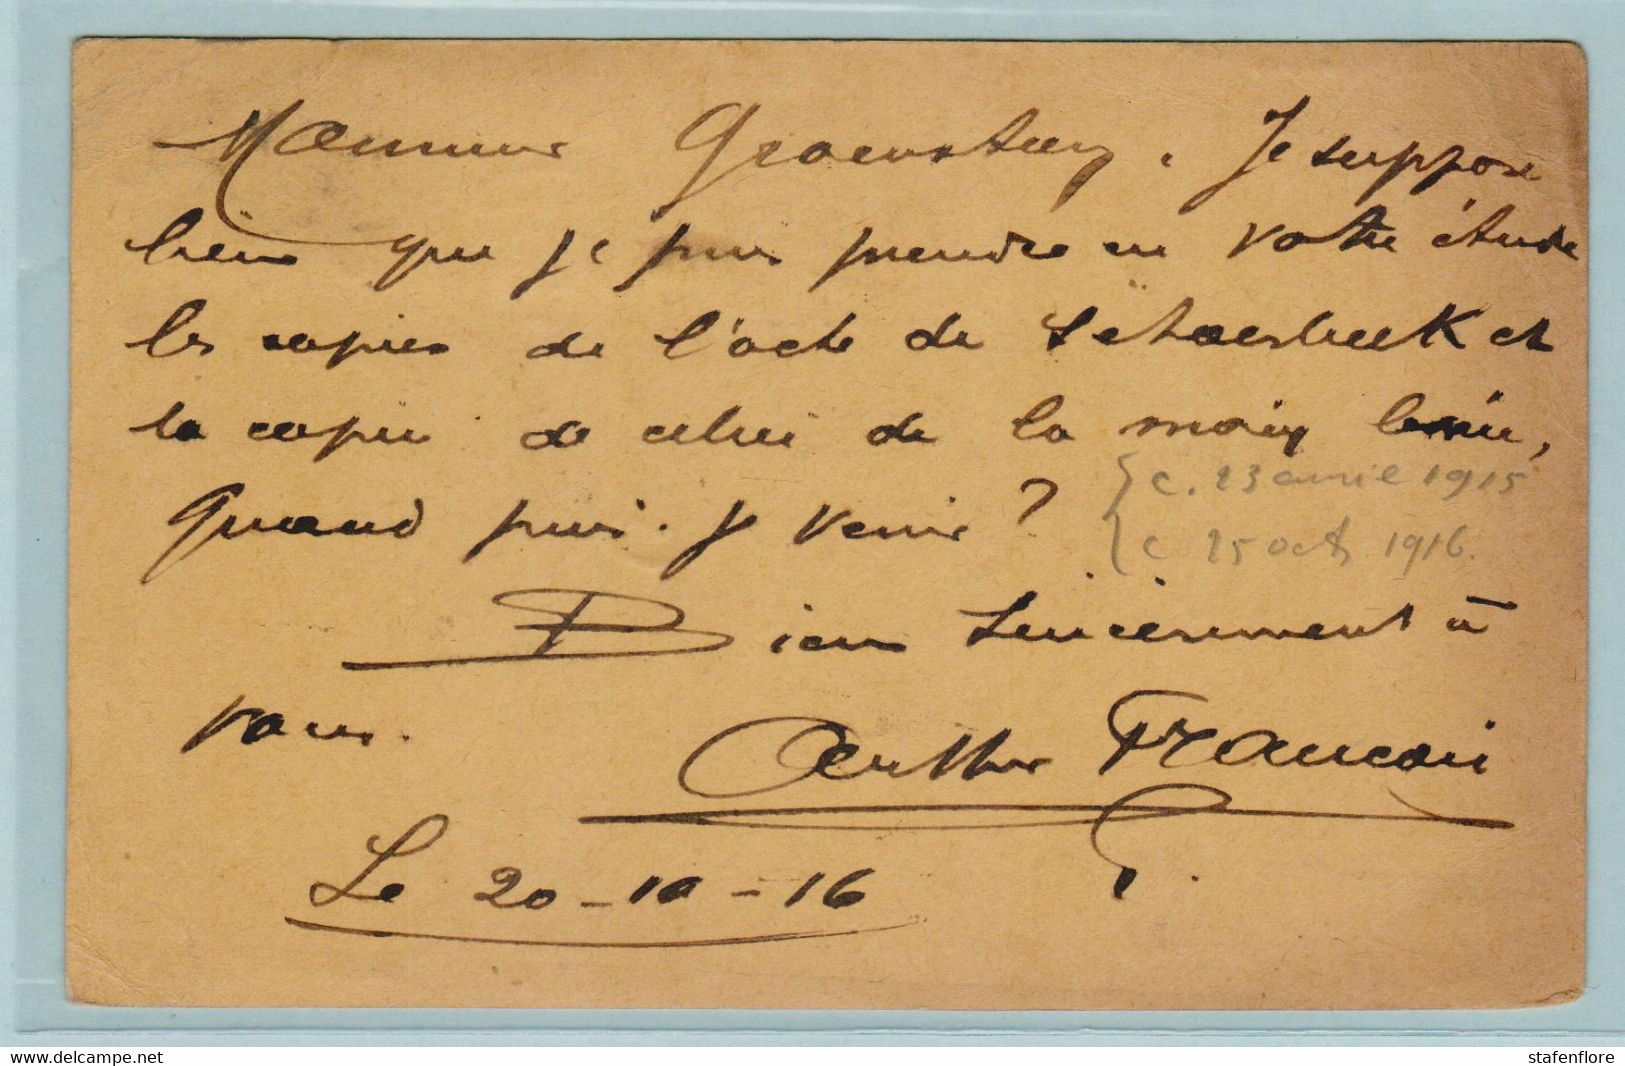 Monsieur Groenstein. Je suppose
bien que je puis prendre en votre étude
les copies de l'acte de Schaerbeek et
la copie de celui de la main levée,
Quand puis-je venir ?
{ c. 23 avril 1915
{ c 25 oct 1916.
Bien sincèrement à
vous.
Arthur François
Le 20-10-16
www.delcampe.net
stafenflore